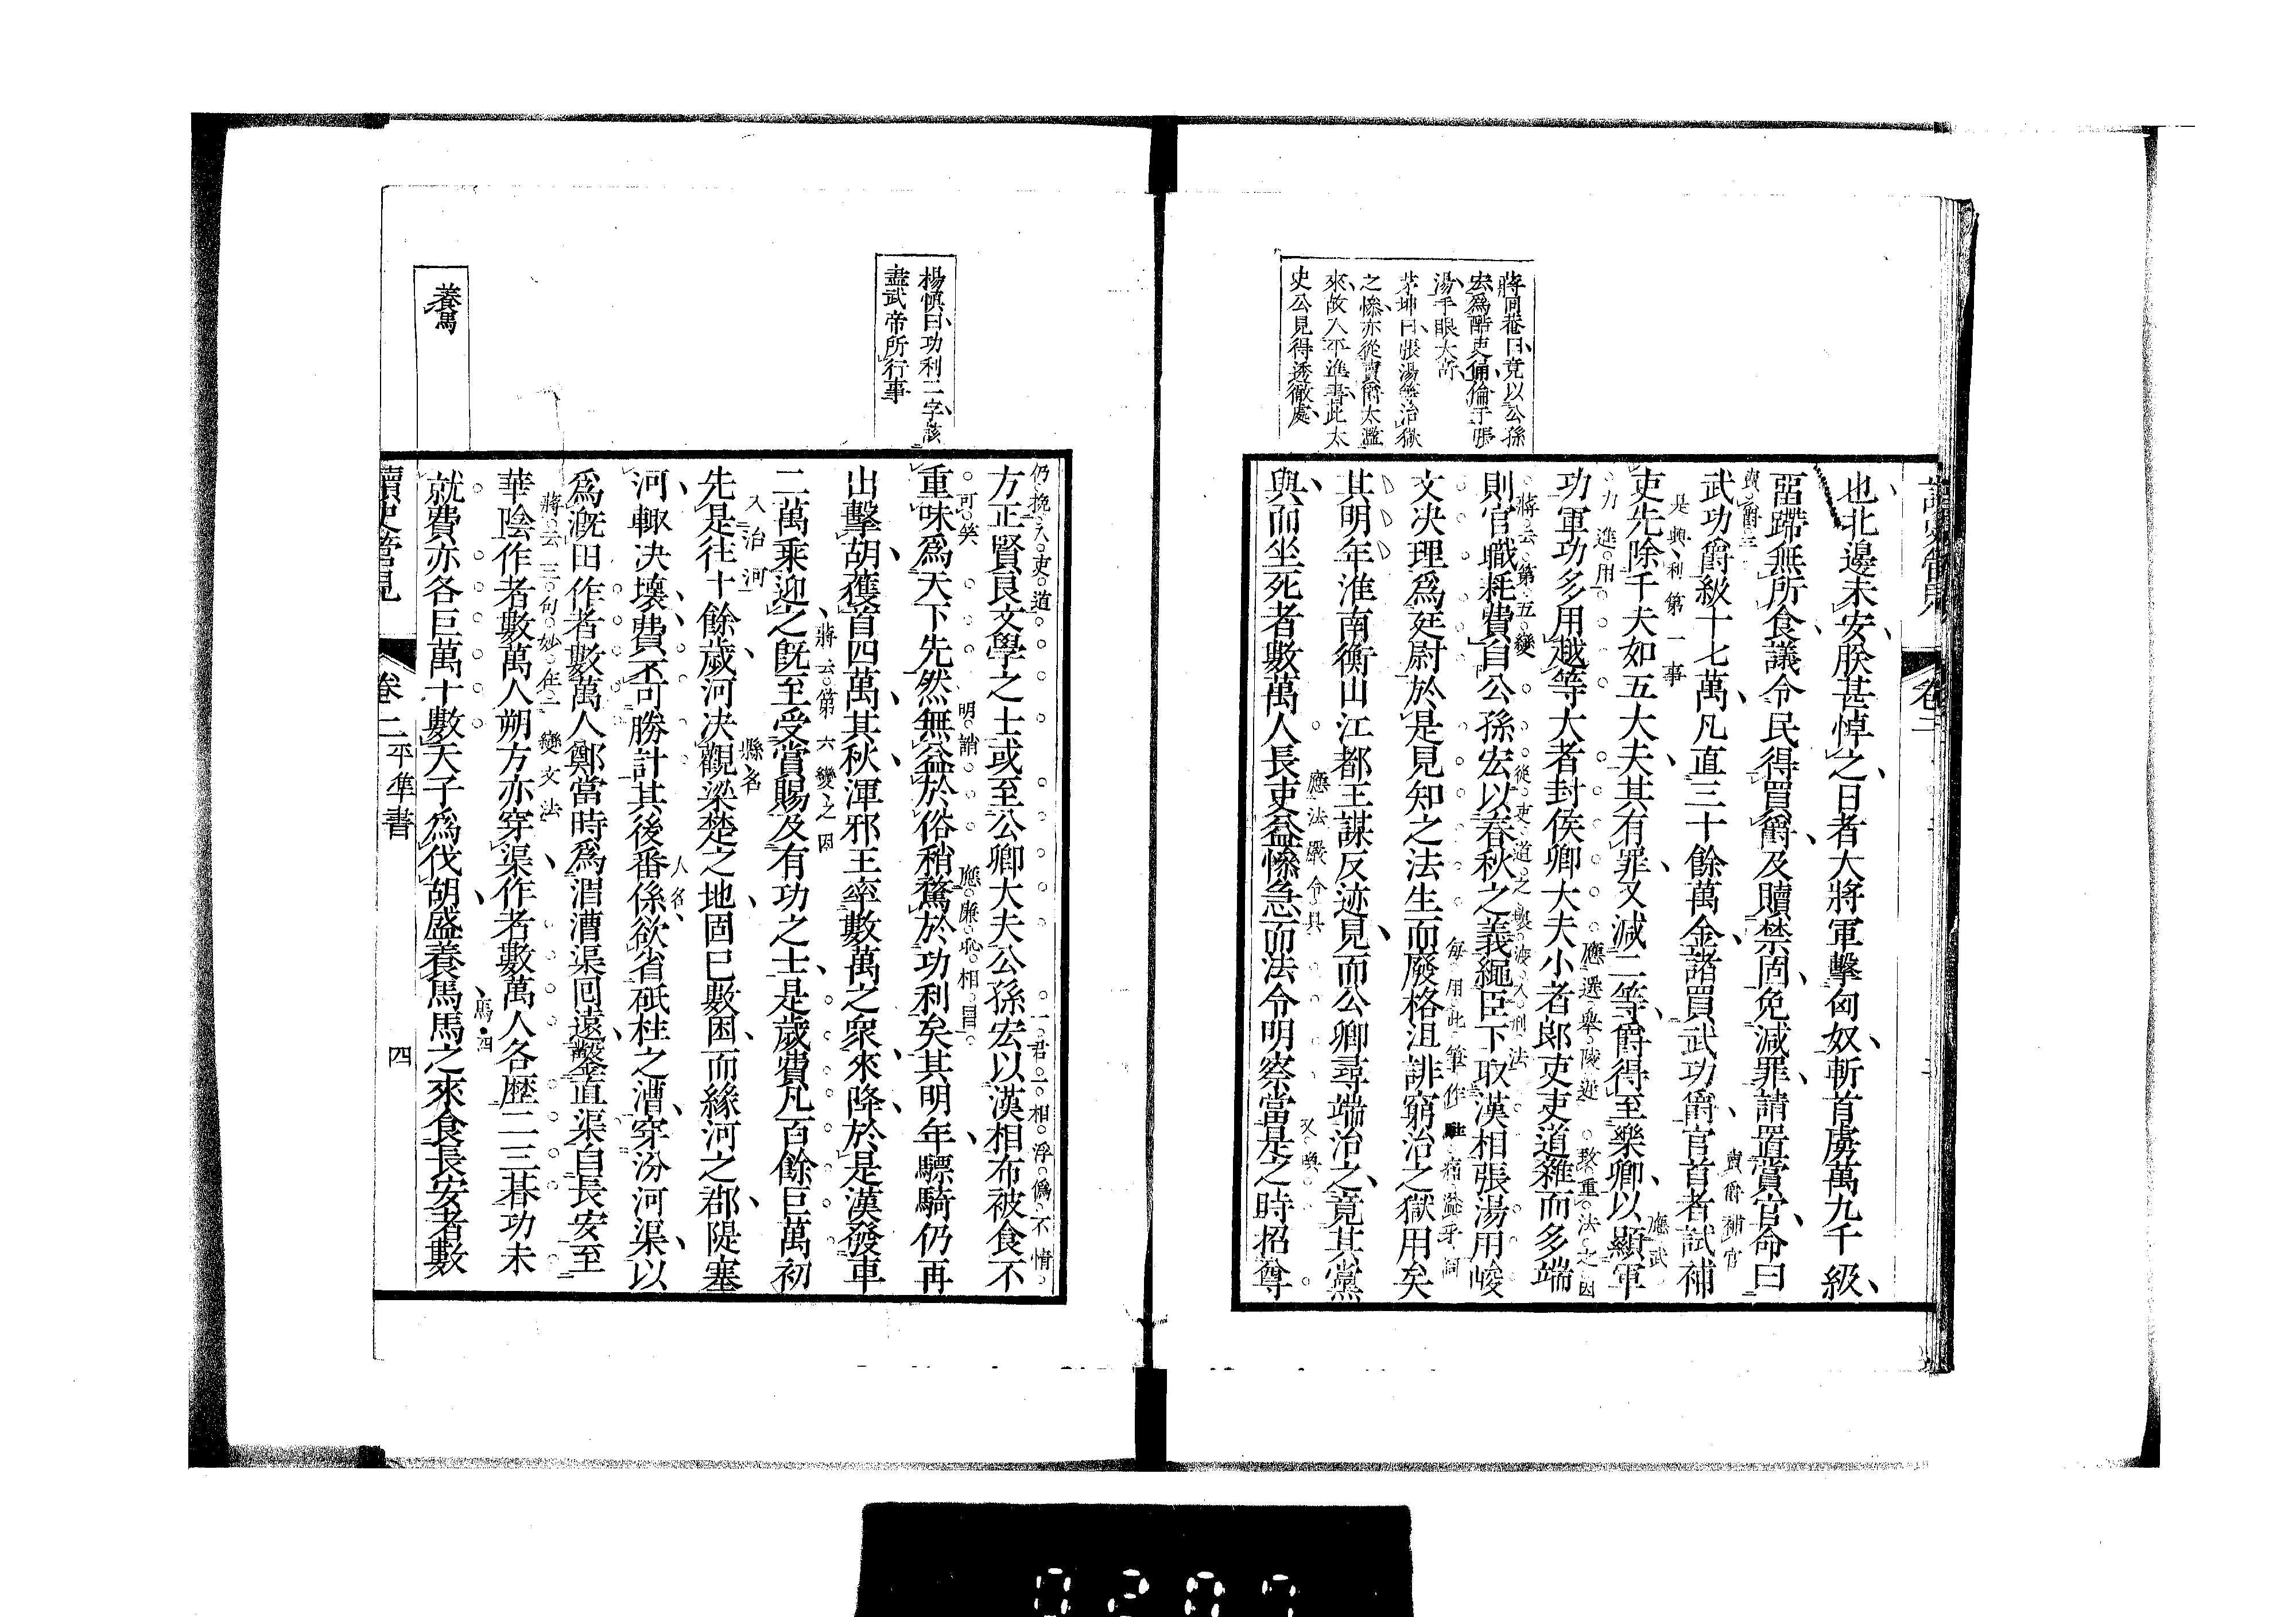 蔣同菴曰竟以公孫
宏爲酷吏備倫于張
湯手眼大奇
茅坤曰張湯等治獄
之慘亦從賣爵太濫
來故入平準書此太
史公見得透徹處
卷二
也北邊未安朕甚悼之日者大將軍擊匈奴斬首虜萬九千級
留蹛無所食議令民得買爵及贖禁固免減罪請置賞官命曰
賣爵三
賣爵補官
武功爵級十七萬凡直三十餘萬金諸買武功爵官首者試補
是興利第一事
應武
吏先除千夫如五大夫其有罪又減二等爵得至樂卿以顯軍
力進用
應選舉陵遲
致重法之因
功軍功多用越等大者封侯卿大夫小者郎吏吏道雜而多端
蔣云第五變
從吏道之壞波入刑法
則官職耗費自公孫宏以春秋之義繩臣下取漢相張湯用峻
每用此筆作
文決理爲廷尉於是見知之法生而廢格沮誹窮治之獄用矣
其明年淮南衡山江都王謀反迹見而公卿尋端治之竟其黨
應法嚴令具
與而坐死者數萬人長吏益慘急而法令明察當是之時招尊
楊慎曰功利二字該
盡武帝所行事
養馬
仍挽入吏道
一君一相浮僞不情
方正賢良文學之士或至公卿大夫公孫宏以漢相布被食不
可笑
明誚
應廉恥相冒
重味爲天下先然無益於俗稍騖於功利矣其明年驃騎仍再
出擊胡獲首四萬其秋渾邪王率數萬之衆來降於是漢發車
蔣云第六變之因
二萬乘迎之既至受賞賜及有功之士是歲費凡百餘巨萬初
入治河
縣名
先是往十餘歲河決觀梁楚之地固已數困而緣河之郡隄塞
人名
河輙决壞費不可勝計其後番係欲省砥柱之漕穿汾河渠以
爲溉田作者數萬人鄭當時爲渭漕渠回遠鑿直渠自長安至
蔣云三句妙在三變文法
華陰作者數萬人朔方亦穿渠作者數萬人各歷二三朞功未
馬四
就費亦各巨萬十數天子爲伐胡盛養馬馬之來食長安者數
讀史管見
卷二
平準書
四
0207